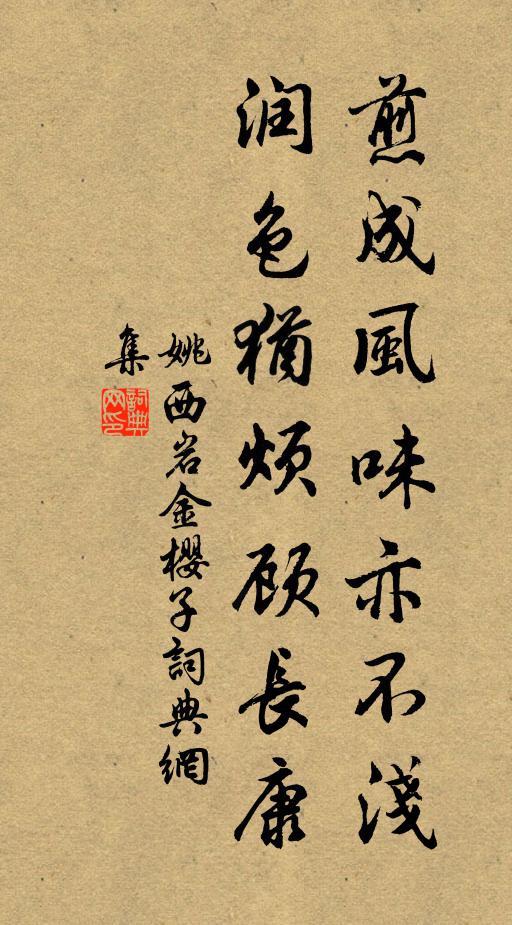 煎成風味亦不淺
润色猶烦顾長康
姚西岩金櫻子詞典網
集
詞典
网印